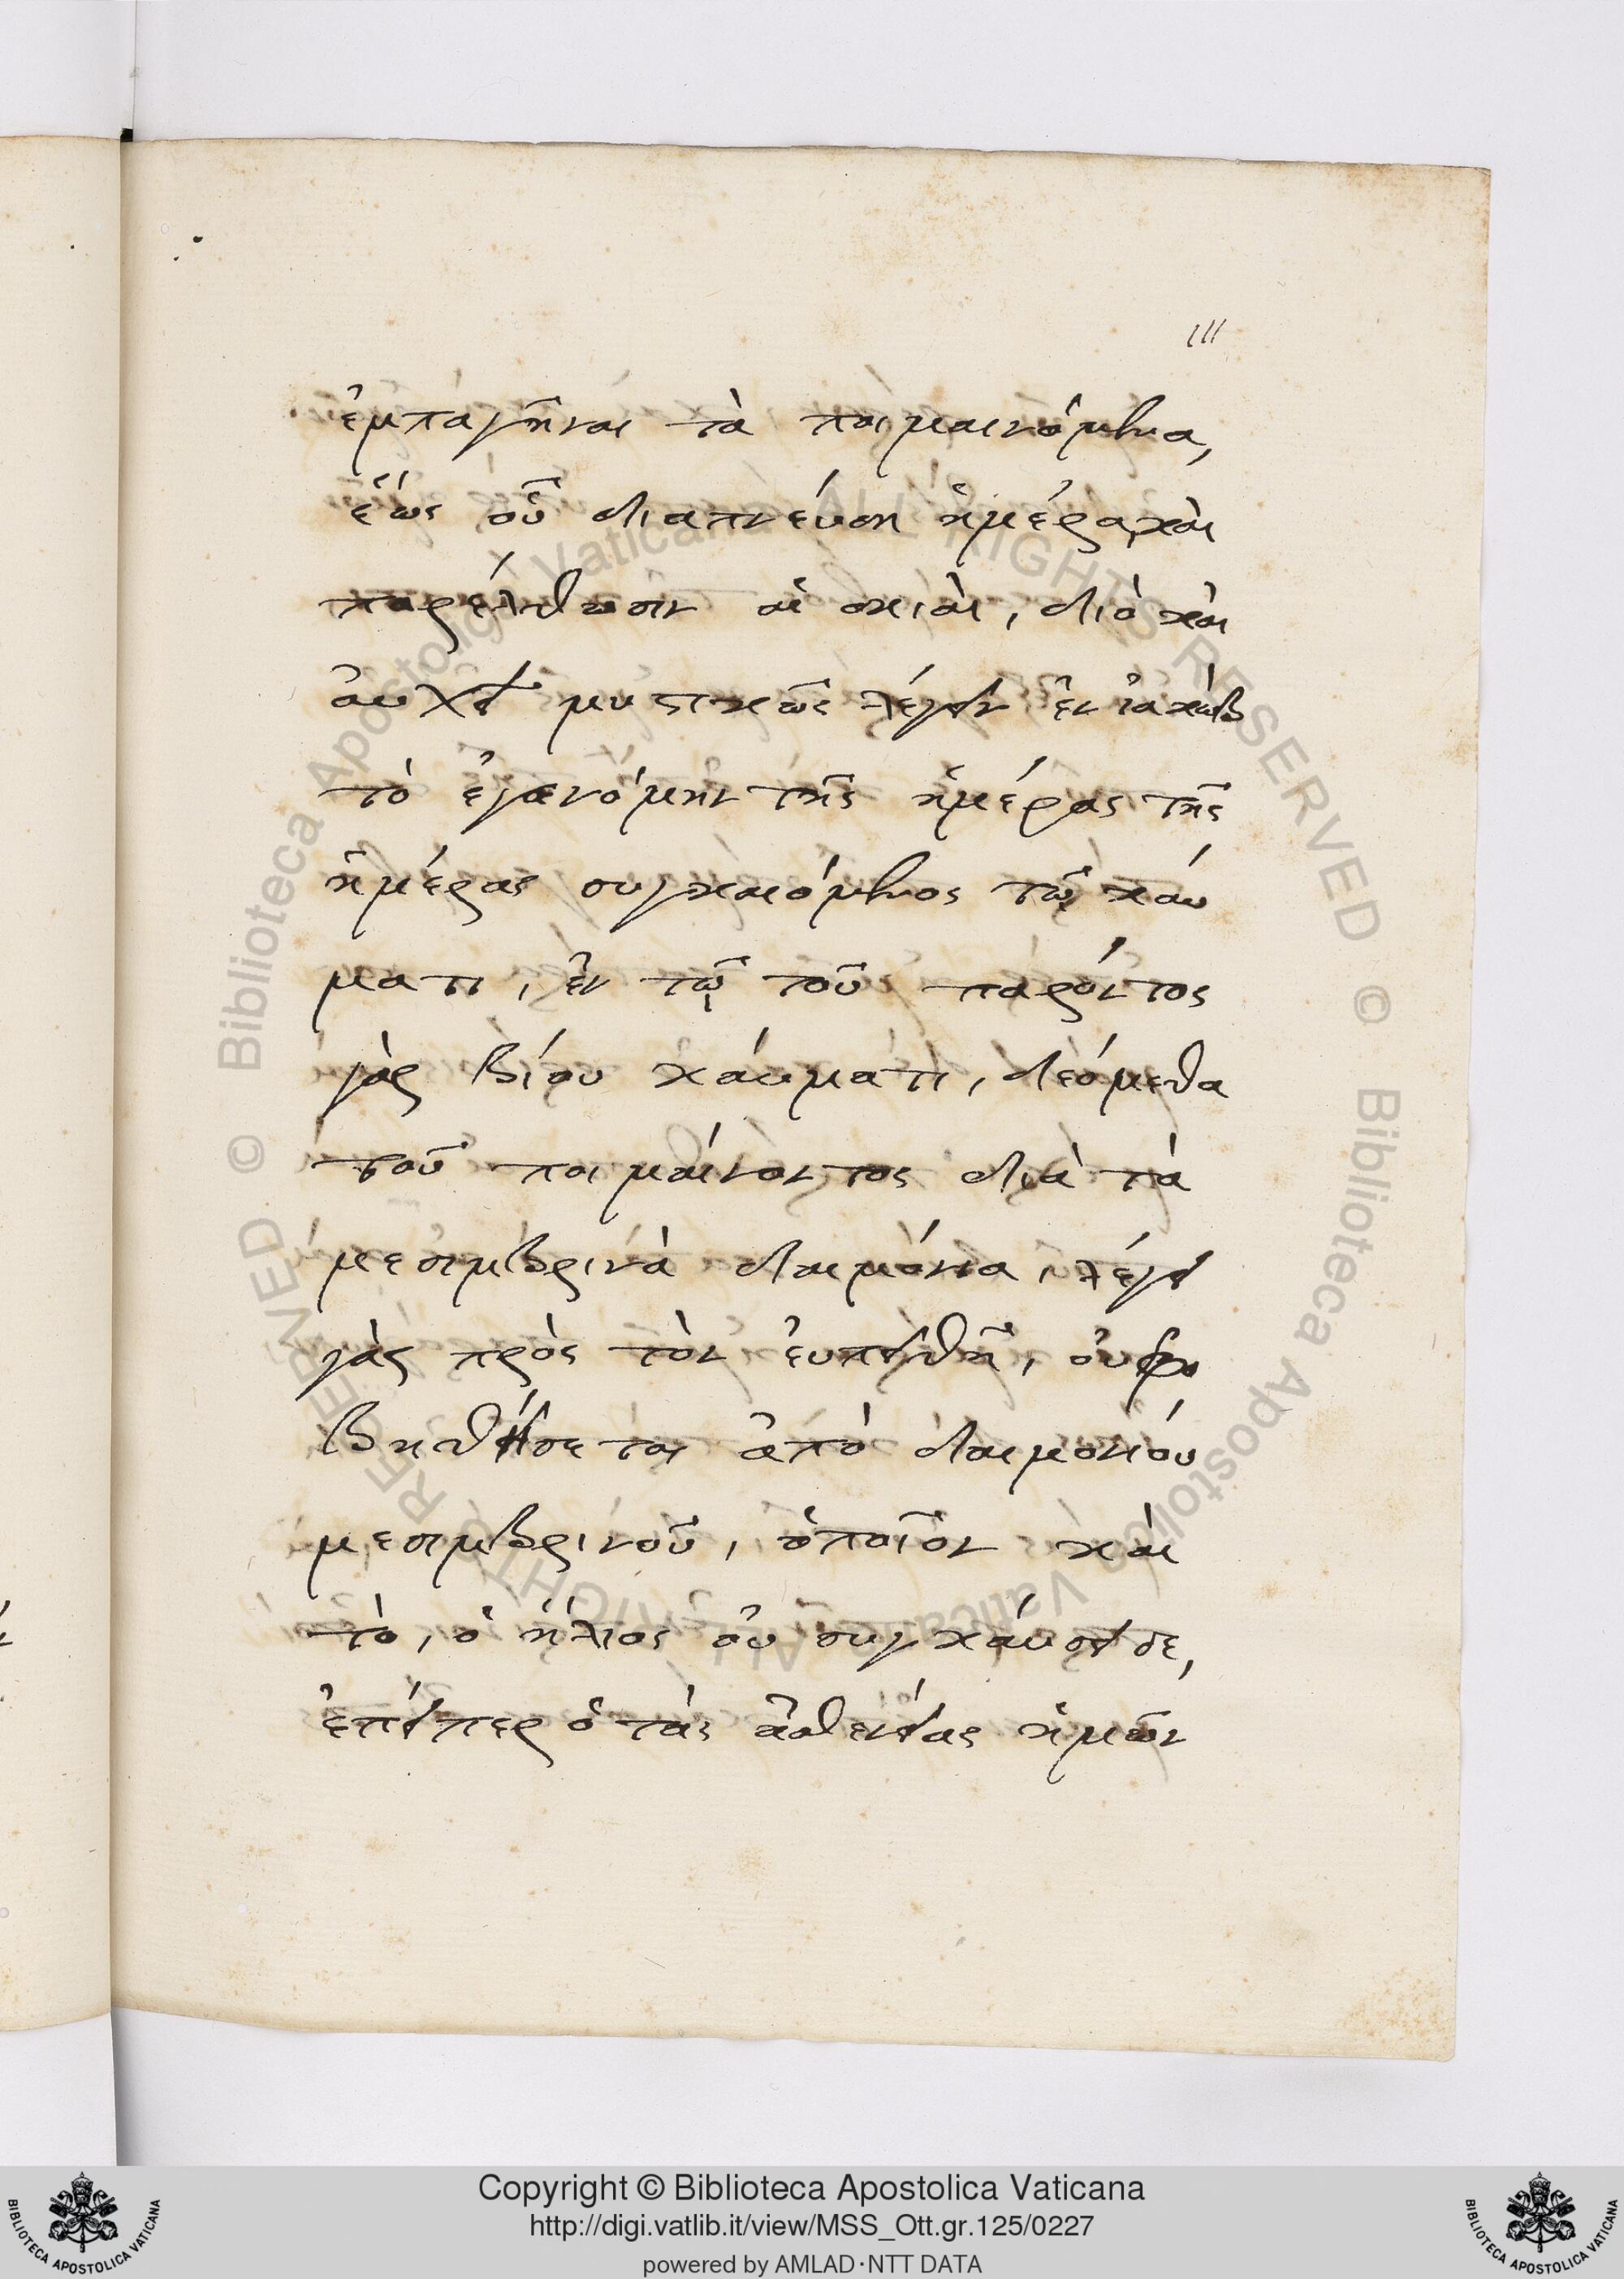 111
ἐμπαγῆναι τὰ ποιμαινόμενα,
ἕως οὗ διαπνεύση ἡμέρα, καὶ
παρέλθωσιν αἱ σκιαὶ, διὸ καὶ
αὐχεῖ μυστικῶς λέγειν ἐν ἰακὼβ
τὸ ἐγενόμην τῆς ἡμέρας τῆς
ἡμέρας συγκαιόμενος τῷ καύ
ματι, ἐν τῷ τοῦ παρόντος
γὰρ βίου καύματι, δεόμεθα
τοῦ ποιμαίνοντος διὰ τὰ
μεσημβρινὰ δαιμόνια, λέγει
γὰρ πρὸς τὸν εὐπειθῆ, οὐ φο
βηθήσεται ἀπὸ δαιμονίου
μεσημβρινοῦ, ὁποῖον καὶ
τὸ, ὁ ἥλιος οὐ συγκαύσει σε,
ἐπείπερ ὁ τὰς ἀσθενείας ἡμῶν
© Biblioteca Apostolica Vaticana ALL RIGHTS RESERVED
© Biblioteca Apostolica Vaticana ALL RIGHTS RESERVED
Copyright © Biblioteca Apostolica Vaticana
http://digi.vatlib.it/view/MSS_Ott.gr.125/0227
powered by AMLAD·NTT DATA
BIBLIOTECA APOSTOLICA VATICANA
BIBLIOTECA APOSTOLICA VATICANA